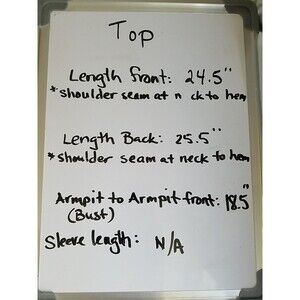 Top
Length front: 24.5"
*shoulder seam at n ck to hem
Length Back: 25.5"
*shoulder seam at neck to hem
Armpit to Armpit front: 18.5"
(Bust)
Sleeve length: N/A